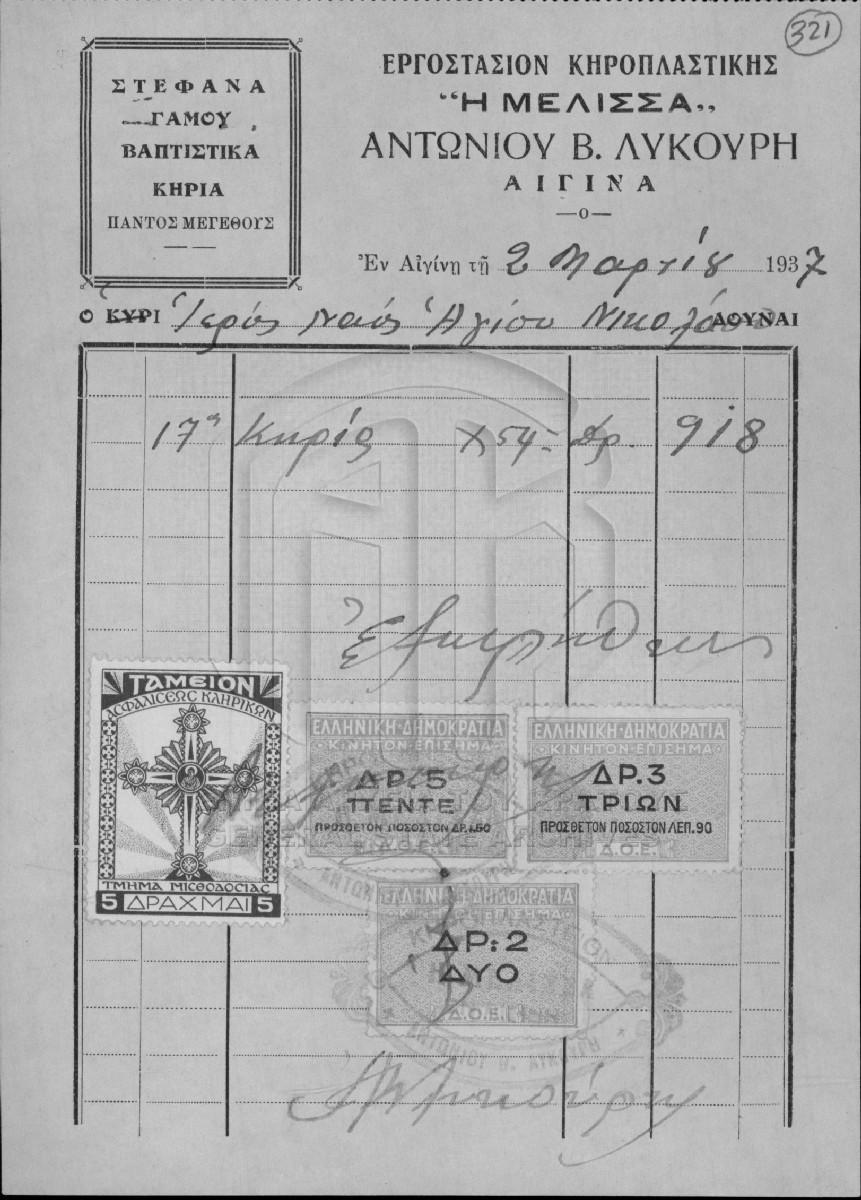 321
ΣΤΕΦΑΝΑ
ΓΑΜΟΥ
ΒΑΠΤΙΣΤΙΚΑ
ΚΗΡΙΑ
ΠΑΝΤΟΣ ΜΕΓΕΘΟΥΣ
ΕΡΓΟΣΤΑΣΙΟΝ ΚΗΡΟΠΛΑΣΤΙΚΗΣ
“Η ΜΕΛΙΣΣΑ„
ΑΝΤΩΝΙΟΥ Β. ΛΥΚΟΥΡΗ
ΑΙΓΙΝΑ
Ἐν Αἰγίνῃ τῇ 2 Μαρτίου 1937
Ο ΚΥΡΙ Ἱερός Ναός Ἁγίου Νικολάου ΔΟΥΝΑΙ
17 Κηρία Χ 54 - Δρ. 918
Ἐξωφλήθη
ΤΑΜΕΙΟΝ
ΑΣΦΑΛΙΣΕΩΣ ΚΛΗΡΙΚΩΝ
ΤΜΗΜΑ ΜΙΣΘΟΔΟΣΙΑΣ
5 ΔΡΑΧΜΑΙ 5
ΕΛΛΗΝΙΚΗ·ΔΗΜΟΚΡΑΤΙΑ
ΚΙΝΗΤΟΝ·ΕΠΙΣΗΜΑ
ΔΡ. 5
ΠΕΝΤΕ
ΠΡΟΣΘΕΤΟΝ ΠΟΣΟΣΤΟΝ ΔΡ.1.50
Δ.Ο.Ε.
ΕΛΛΗΝΙΚΗ·ΔΗΜΟΚΡΑΤΙΑ
ΚΙΝΗΤΟΝ·ΕΠΙΣΗΜΑ
ΔΡ.3
ΤΡΙΩΝ
ΠΡΟΣΘΕΤΟΝ ΠΟΣΟΣΤΟΝ ΛΕΠ.90
Δ.Ο.Ε.
ΕΛΛΗΝΙΚΗ·ΔΗΜΟΚΡΑΤΙΑ
ΚΙΝΗΤΟΝ·ΕΠΙΣΗΜΑ
ΔΡ: 2
ΔΥΟ
Δ.Ο.Ε.
ΑΝΤΩΝΙΟΥ Β. ΛΥΚΟΥΡΗ
Λυκούρη